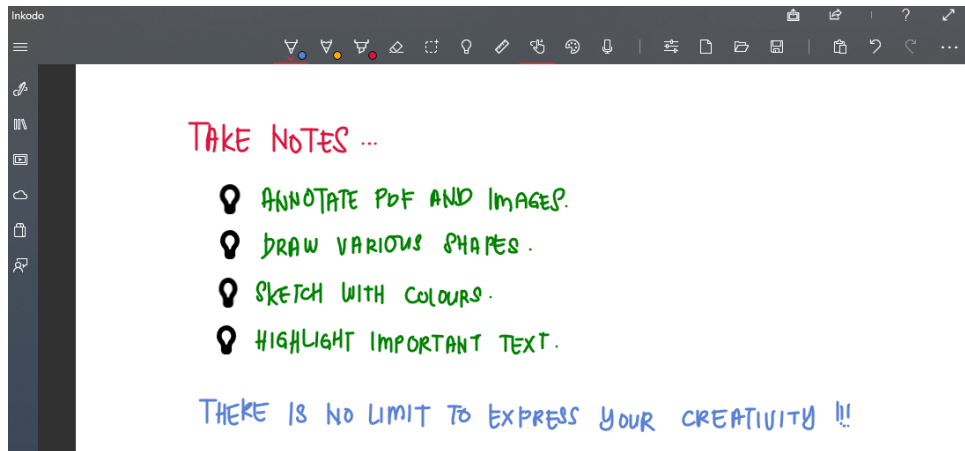 Inkodo
TAKE NOTES ...
ANNOTATE PDF AND IMAGES.
DRAW VARIOUS SHAPES.
SKETCH WITH COLOURS.
HIGHLIGHT IMPORTANT TEXT.
THERE IS NO LIMIT TO EXPRESS YOUR CREATIVITY !!!